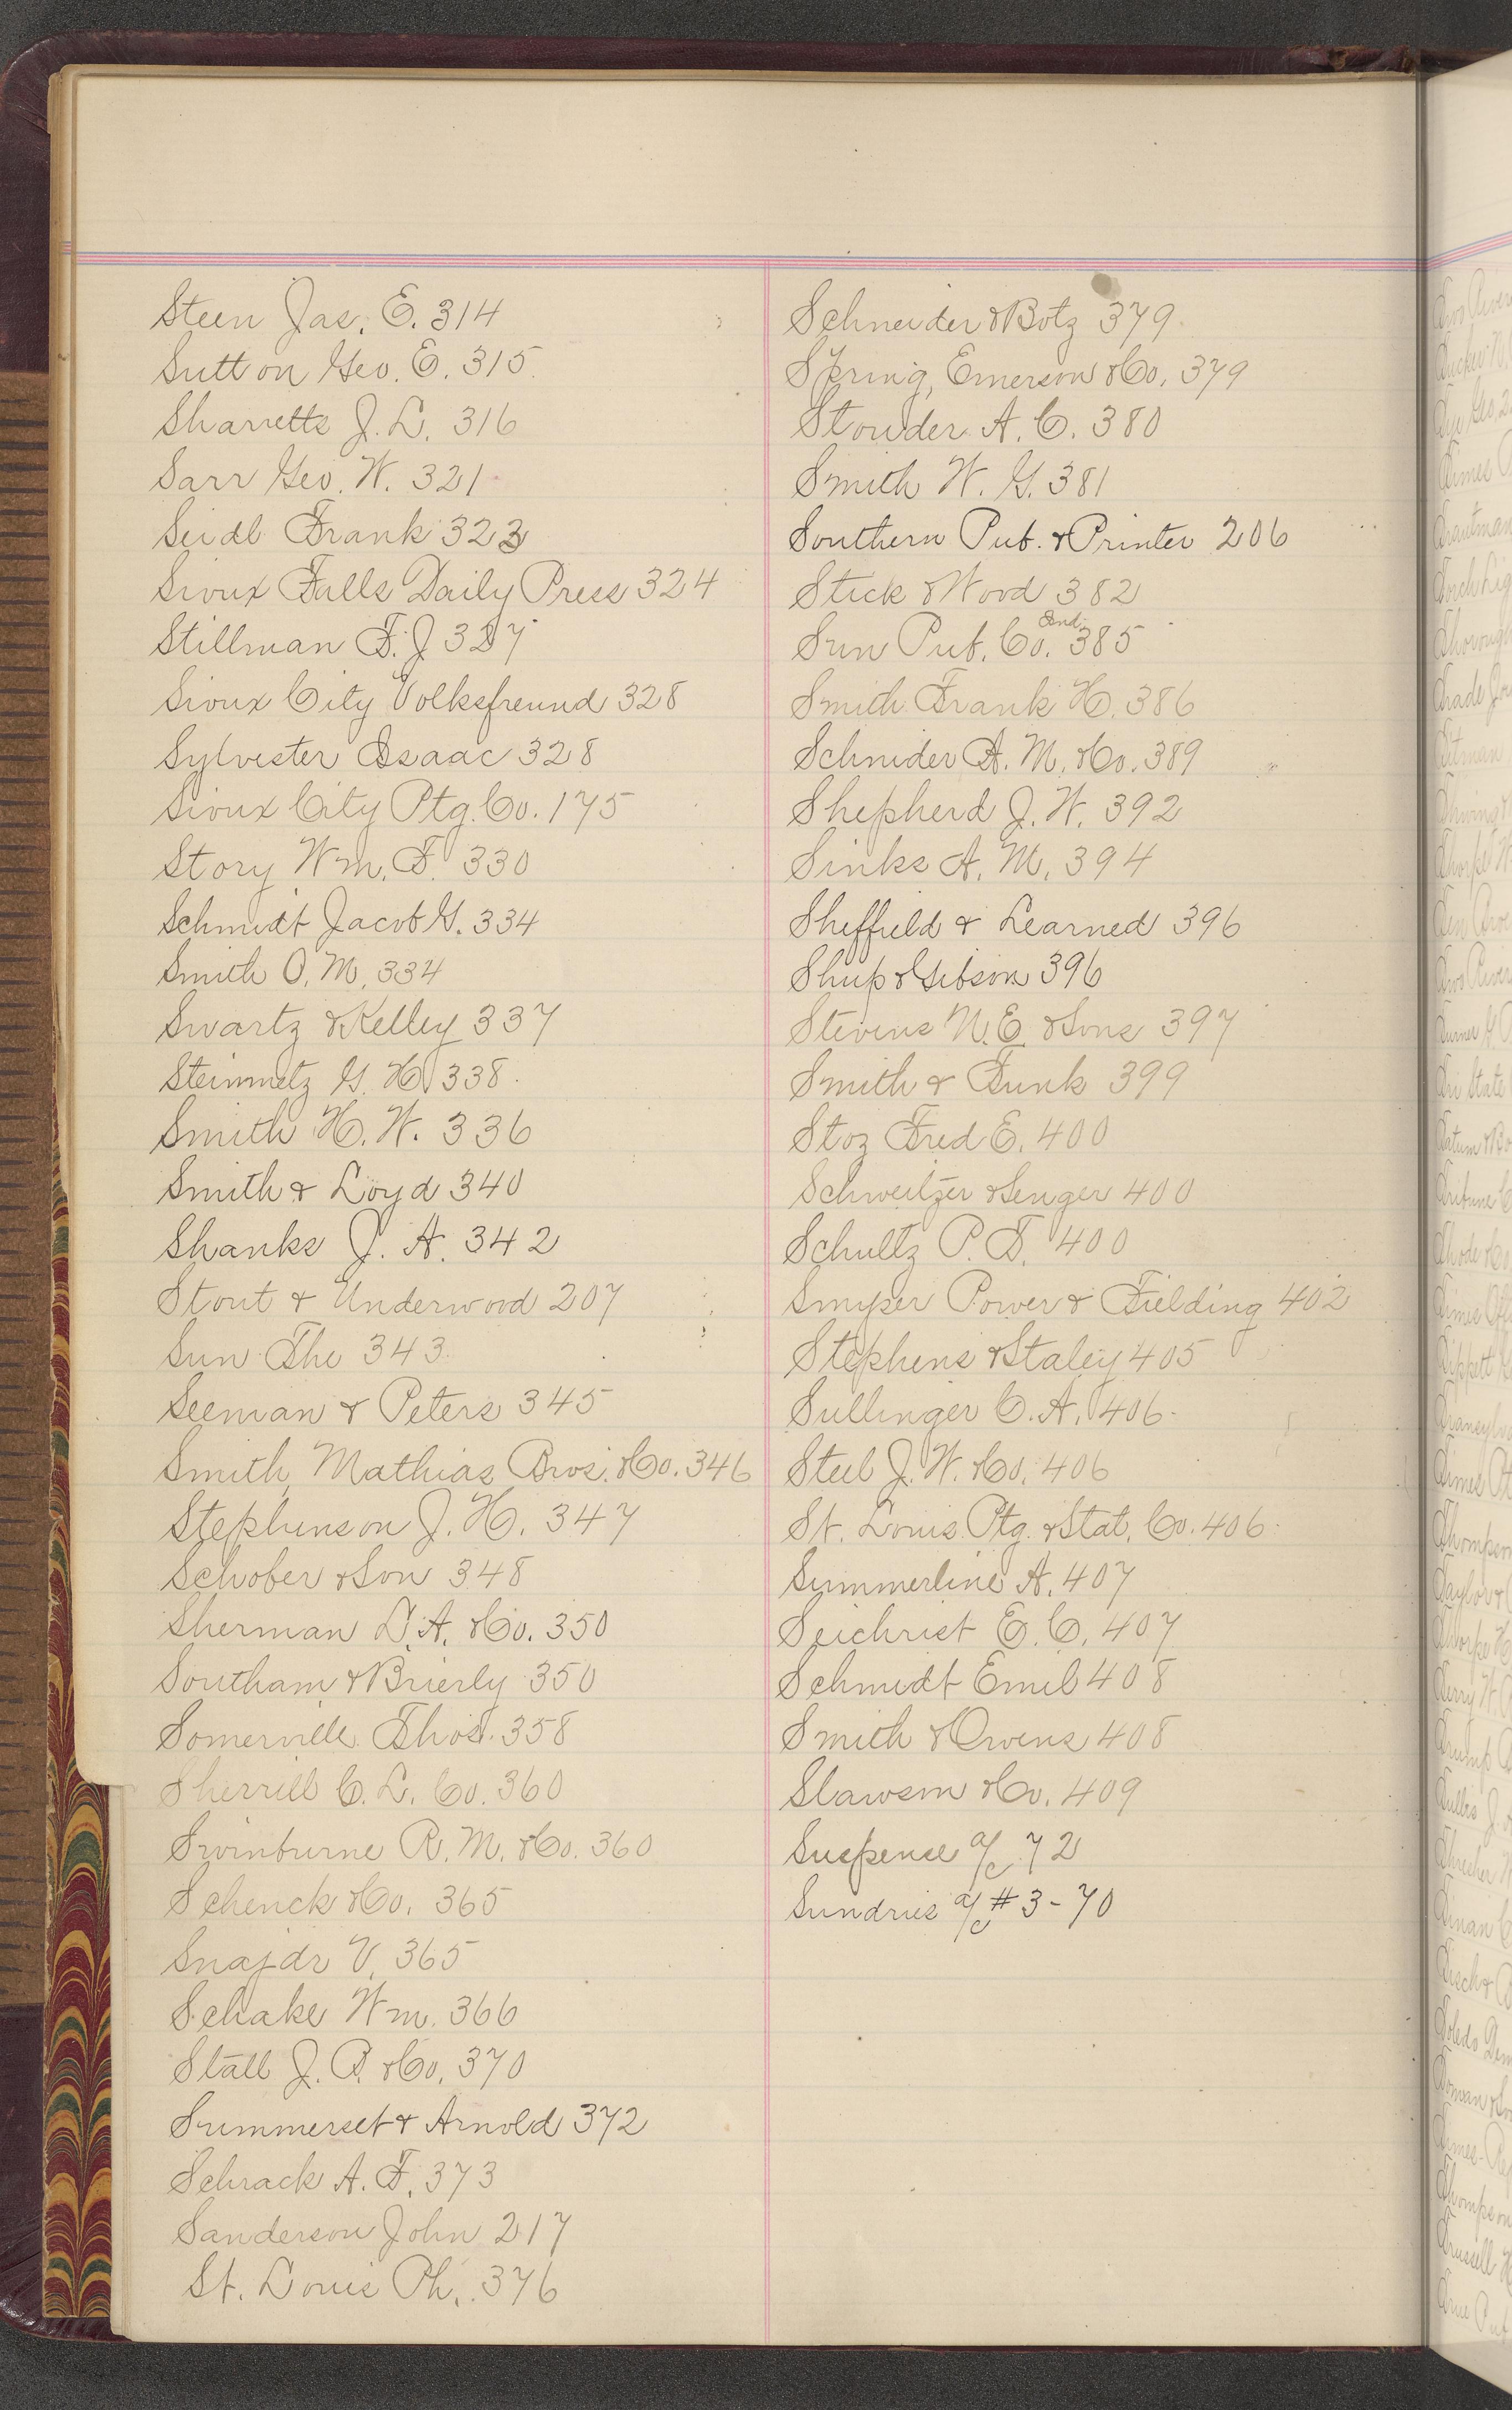 Steen Jas. E. 314
Sutton Geo. E. 315
Sharretts J. L. 316
Sarr Geo. W. 321
Seidl Frank 323
Sioux Falls Daily Press 324
Stillman F. J 327
Sioux City Volksfreund 328
Sylvester Isaac 328
Sioux City Ptg. Co. 175
Story Wm. F. 330
Schmidt Jacob G. 334
Smith O. M. 334
Swartz & Kelley 337
Steinmetz G. H. 338
Smith H. W. 336
Smith & Loyd 340
Shanks J. A. 342
Stout & Underwood 207
Sun The 343
Seeman & Peters 345
Smith, Mathias Bros. & Co. 346
Stephenson J. H. 347
Schober & Son 348
Sherman L. A. & Co. 350
Southam & Brierly 350
Somerville Thos. 358
Sherrill C. L. Co. 360
Swinburne R. M. & Co. 360
Schenck & Co. 365
Snajdr V. 365
Schake Wm. 366
Stall J. B. & Co. 370
Summerset & Arnold 372
Schrack A. F. 373
Sanderson John 217
St. Louis Ph. 376
Schneider & Botz 379
Spring, Emerson & Co. 379
Stowder A. C. 380
Smith W. G. 381
Southern Pub. & Printer 206
Stick & Wood 382
Sun Pub. Co. Ind. 385
Smith Frank H. 386
Schnider A. M. & Co. 389
Shepherd J. W. 392
Sinks A. M. 394
Sheffield & Learned 396
Shup & Gibson 396
Stevens N. E. & Sons 397
Smith & Funk 399
Stoz Fred E. 400
Schweitzer & Senger 400
Schultz P. F. 400
Smyser Power & Fielding 402
Stephens & Staley 405
Sullinger C. A. 406
Steel J. W. & Co. 406
St. Louis Ptg. & Stat. Co. 406
Summerline A. 407
Seichrist E. C. 407
Schmidt Emil 408
Smith & Owens 408
Slawson & Co. 409
Suspense a/c 72
Sundries a/c # 3 - 70